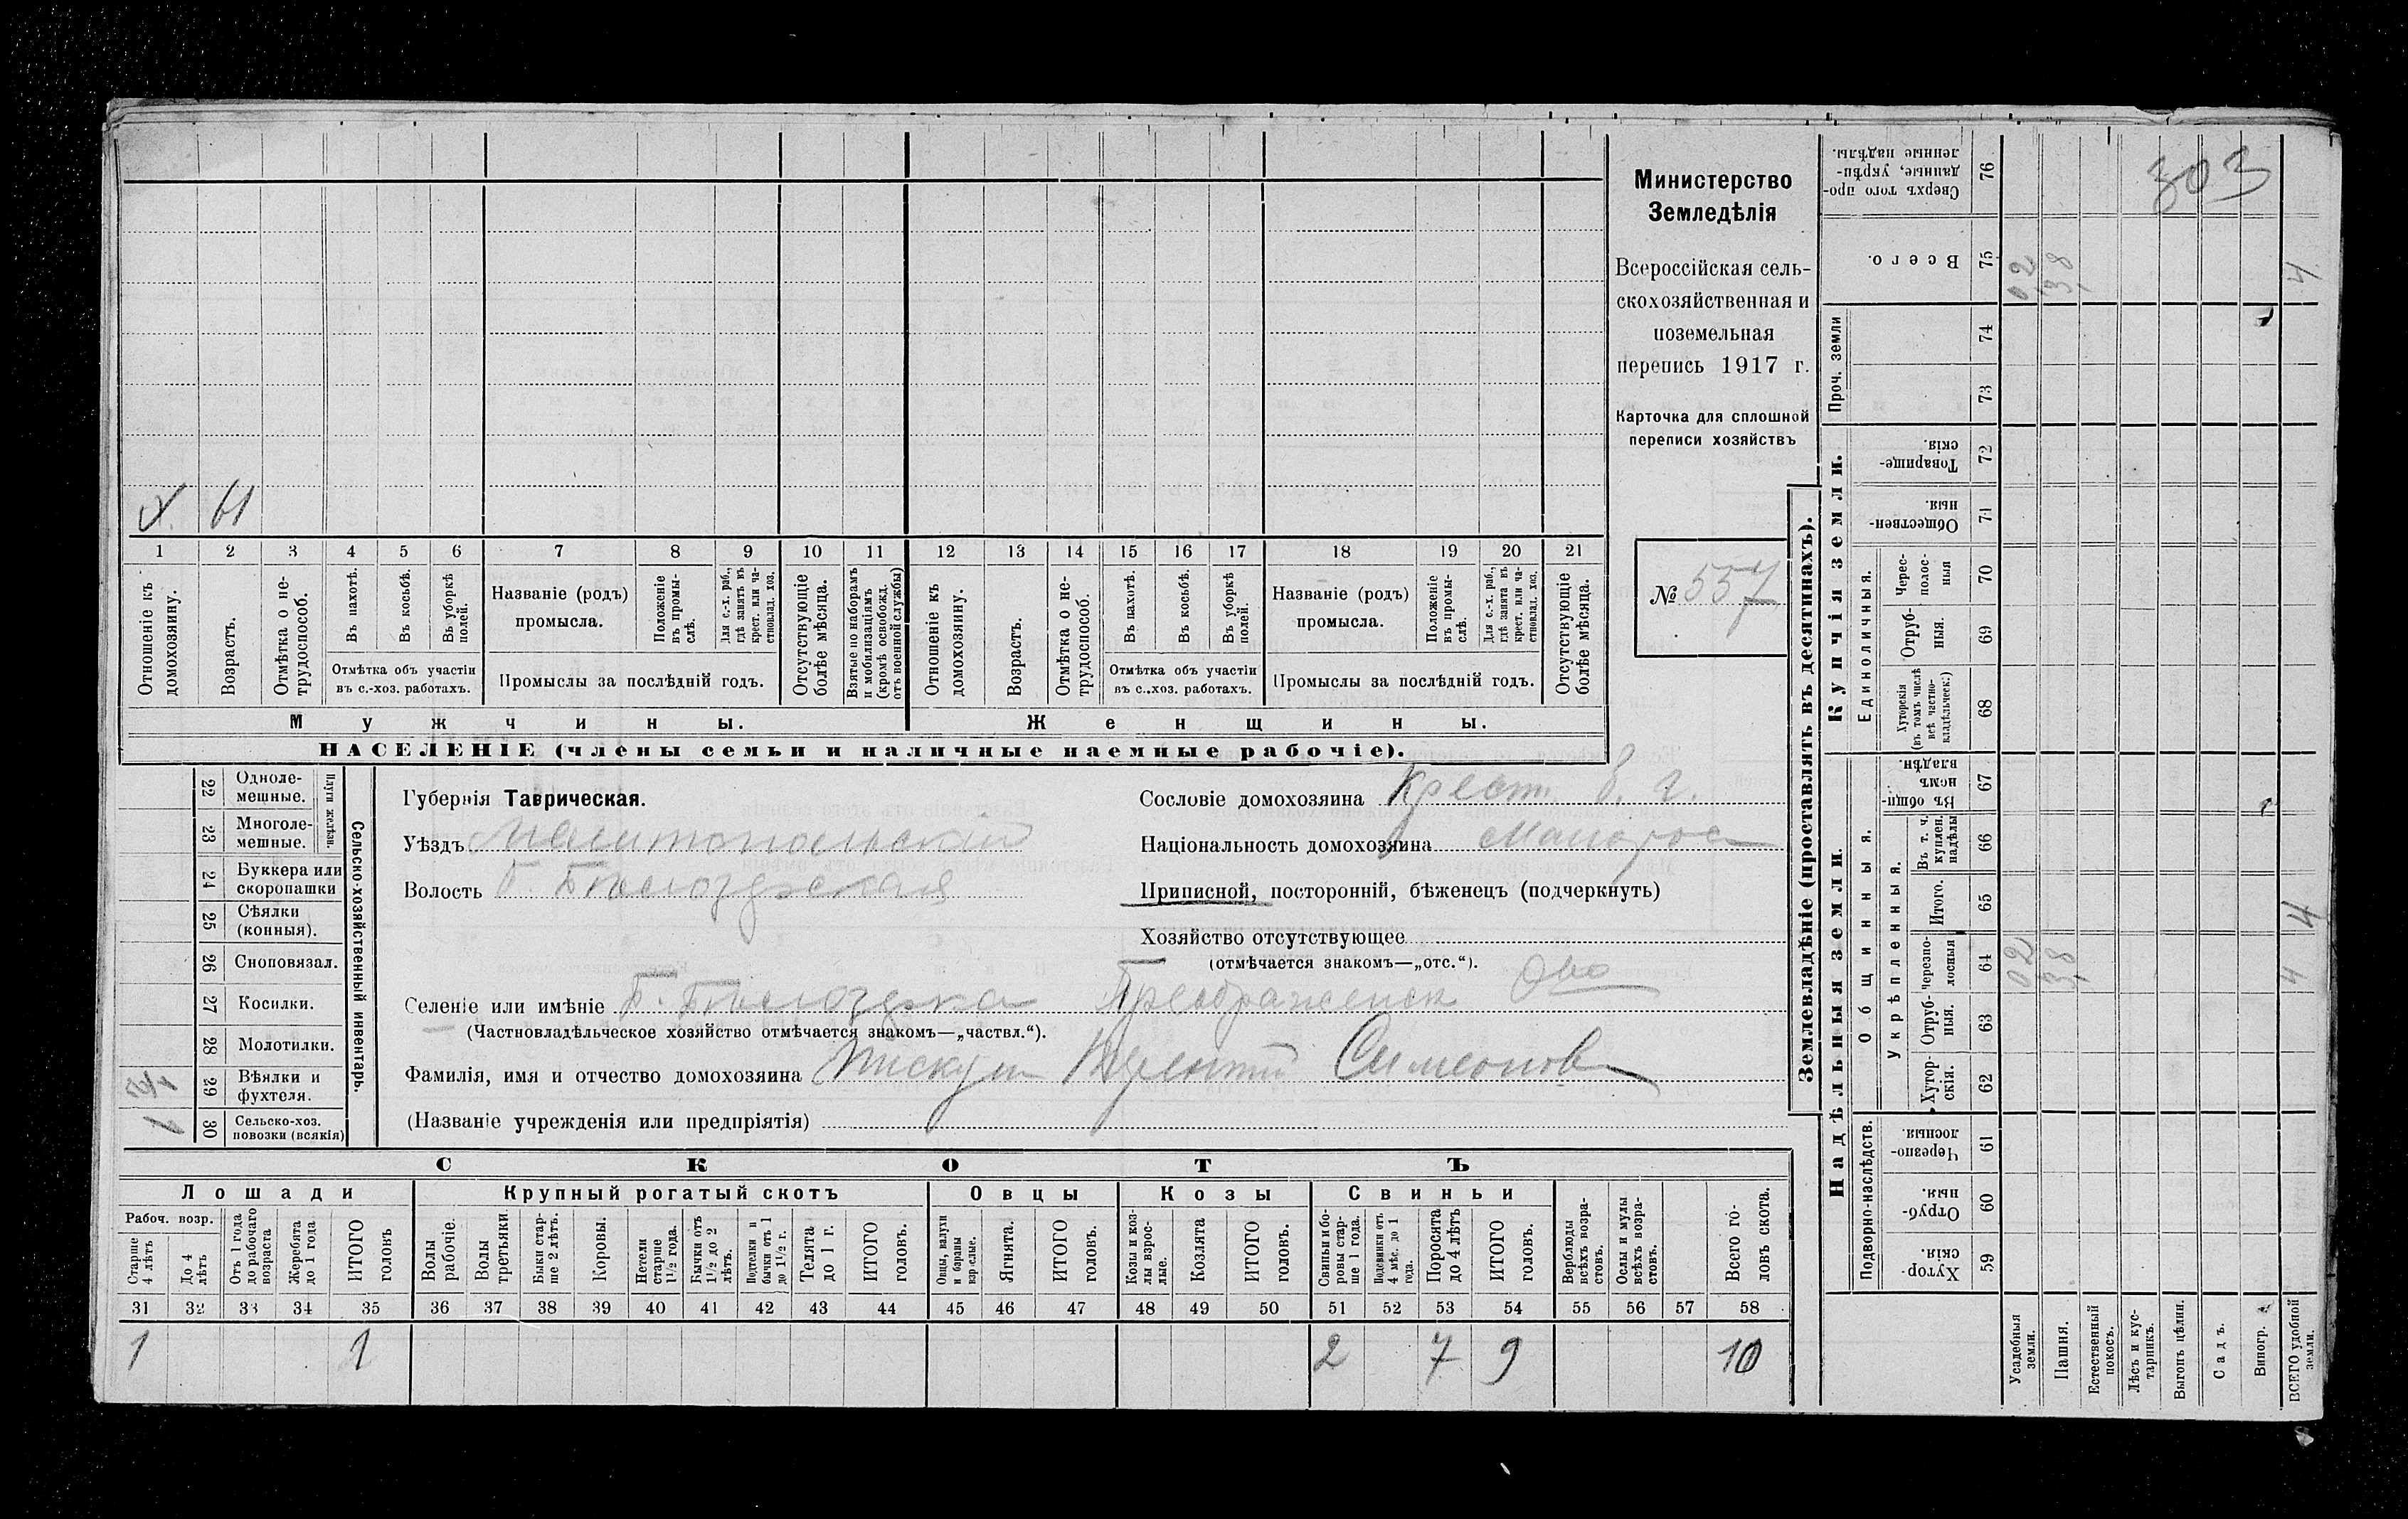 303
Министерство
Земледѣлія
Всероссійская сель-
скохозяйственная и
поземельная
перепись 1917 г.
Карточка для сплошной
переписи хозяйствъ
№ 557
61
1 2 3 4 5 6 7 8 9 10 11 12 13 14 15 16 17 18 19 20 21
Отношеніе къ домохозяину.
Возрастъ.
Отмѣтка о не-
трудоспособ.
Въ пахотѣ.
Въ косьбѣ.
Въ уборкѣ полей.
Отмѣтка объ участіи
въ с.-хоз. работахъ.
Названіе (родъ)
промысла.
Положеніе въ промы-
слѣ.
Для с.-х. раб., гдѣ занятъ въ крест. или ча-
стновлад. хоз.
Промыслы за послѣдній годъ.
Отсутствующіе болѣе мѣсяца.
Взятые по наборамъ и мобилизаціямъ (кромѣ освобожд. отъ военной службы)
Отношеніе къ домохозяину.
Возрастъ.
Отмѣтка о не-
трудоспособ.
Въ пахотѣ.
Въ косьбѣ.
Въ уборкѣ полей.
Отмѣтка объ участіи
въ с.-хоз. работахъ.
Названіе (родъ)
промысла.
Положеніе въ промы-
слѣ.
Для с.-х. раб., гдѣ занята въ крест. или ча-
стновлад. хоз.
Промыслы за послѣдній годъ.
Отсутствующіе болѣе мѣсяца.
Мужчины.
Женщины.
НАСЕЛЕНІЕ (члены семьи и наличные наемные рабочіе).
22 Одноле-
мешные.
23 Многоле-
мешные.
Плуги желѣзн.
24 Буккера или
скоропашки
25 Сѣялки
(конныя).
26 Сноповязал.
27 Косилки.
28 Молотилки.
29 Вѣялки и
фухтеля.
30 Сельско-хоз.
повозки (всякія)
1
Сельско-хозяйственный инвентарь.
Губернія Таврическая.
Уѣздъ Мелитопольскій
Волость Б. Бѣлозерская
Селеніе или имѣніе Б. Бѣлозерка Преображенск Ово
(Частновладѣльческое хозяйство отмѣчается знакомъ—„частвл.“).
Фамилія, имя и отчество домохозяина Пискун Симеонов
(Названіе учрежденія или предпріятія)
Сословіе домохозяина Крест.
Національность домохозяина Малорос
Приписной, посторонній, бѣженецъ (подчеркнуть)
Хозяйство отсутствующее
(отмѣчается знакомъ—„отс.“).
СКОТЪ
Лошади
Крупный рогатый скотъ
Овцы
Козы
Свиньи
Рабоч. возр.
Старше 4 лѣтъ
До 4 лѣтъ
Отъ 1 года до рабочаго возраста
Жеребята до 1 года
ИТОГО головъ
Волы рабочіе.
Волы третьяки.
Быки стар-
ше 2 лѣтъ.
Коровы.
Нетели старше 1½ года.
Бычки отъ 1½ до 2 лѣтъ.
Подтелки и бычки отъ 1 до 1½ г.
Телята до 1 г.
ИТОГО головъ.
Овцы, валухи и бараны взрослые.
Ягнята.
ИТОГО головъ.
Козы и коз-
лы взрос-
лые.
Козлята
ИТОГО головъ.
Свиньи и бо-
ровы стар-
ше 1 года.
Подсвинки отъ 4 мѣс. до 1 года.
Поросята до 4 лѣтъ
ИТОГО головъ.
Верблюды всѣхъ возра-
стовъ.
Ослы и мулы всѣхъ возра-
стовъ.
Всего го-
ловъ скота.
31 32 33 34 35 36 37 38 39 40 41 42 43 44 45 46 47 48 49 50 51 52 53 54 55 56 57 58
1 1 2 7 9 10
Землевладѣніе (проставлять въ десятинахъ).
Купчія земли.
Надѣльныя земли.
Проч. земли
Единоличныя.
Общинныя.
Укрѣпленныя.
Подворно-наслѣдств.
Сверхъ того про-
данные, укрѣп-
ленные надѣлы. 76
Всего. 75 02 38 4
74
73
Товарище-
скія. 72
Обществен-
ныя. 71
Черес-
полос-
ныя 70
Отруб-
ныя. 69
Хуторскія (въ томъ числѣ всѣ частно-
владѣльческ.) 68
Въ общи-
номъ владѣн. 67
Въ т. ч. куплен. надѣлы 66
Итого. 65 4
Черезпо-
лосныя 64 02 38 4
Отруб-
ныя. 63
Хутор-
скія. 62
Черезпо-
лосныя. 61
Отруб-
ныя. 60
Хутор-
скія. 59
Усадебныя земли.
Пашня.
Естественный покосъ.
Лѣсъ и кус-
тарникъ.
Выгонъ цѣлин.
Садъ.
Виногр.
ВСЕГО удобной земли.